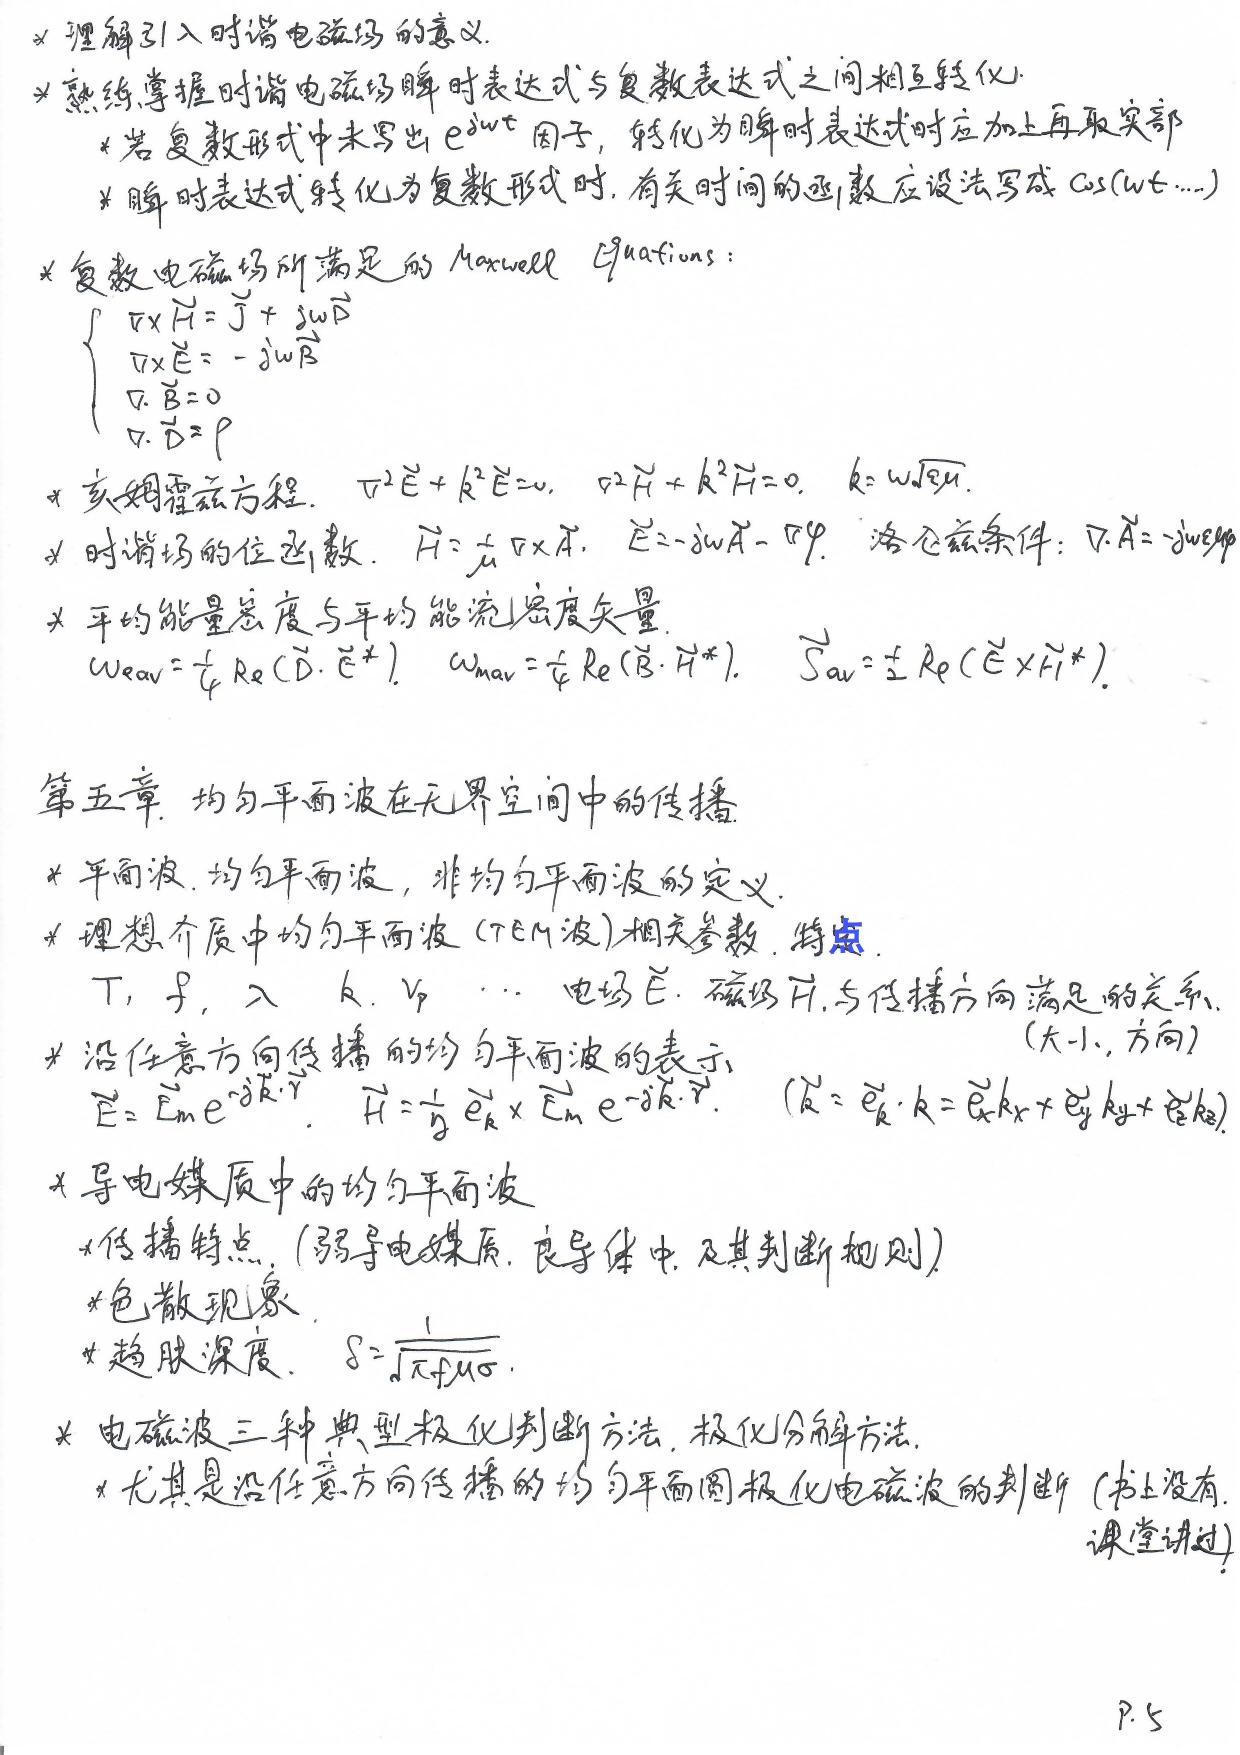 * 理解引入时谐电磁场的意义.
* 熟练掌握时谐电磁场瞬时表达式与复数表达式之间相互转化.
* 若复数形式中未写出 e^{jωt} 因子, 转化为瞬时表达式时应加上再取实部
* 瞬时表达式转化为复数形式时. 有关时间的函数应设法写成 cos(ωt·····)
* 复数电磁场所满足的 Maxwell Equations:
∇×H⃗ = J⃗ + jωD⃗
∇×E⃗ = -jωB⃗
∇·B⃗ = 0
∇·D⃗ = ρ
* 亥姆霍兹方程. ∇²E⃗ + k²E⃗ = 0. ∇²H⃗ + k²H⃗ = 0. k = ω√εμ.
* 时谐场的位函数. H⃗ = 1/μ ∇×A⃗. E⃗ = -jωA⃗ - ∇φ. 洛仑兹条件: ∇·A⃗ = -jωεμφ
* 平均能量密度与平均能流密度矢量.
ωeav = 1/4 Re(D⃗·E⃗*). ωmav = 1/4 Re(B⃗·H⃗*). S⃗av = 1/2 Re(E⃗×H⃗*).
第五章. 均匀平面波在无界空间中的传播.
* 平面波. 均匀平面波, 非均匀平面波的定义.
* 理想介质中均匀平面波 (TEM波) 相关参数. 特点.
T, f, λ k. vp ··· 电场E⃗. 磁场H⃗. 与传播方向满足的关系.
(大小, 方向)
* 沿任意方向传播的均匀平面波的表示
E⃗ = E⃗m e^{-jk⃗·r⃗}. H⃗ = 1/η e⃗k × E⃗m e^{-jk⃗·r⃗}. (k⃗ = e⃗k·k = e⃗x kx + e⃗y ky + e⃗z kz).
* 导电媒质中的均匀平面波
* 传播特点. (弱导电媒质. 良导体中. 及其判断规则)
* 色散现象.
* 趋肤深度. δ = 1/√πfμσ.
* 电磁波三种典型极化判断方法. 极化分解方法.
* 尤其是沿任意方向传播的均匀平面圆极化电磁波的判断 (书上没有.
课堂讲过)!
P.5